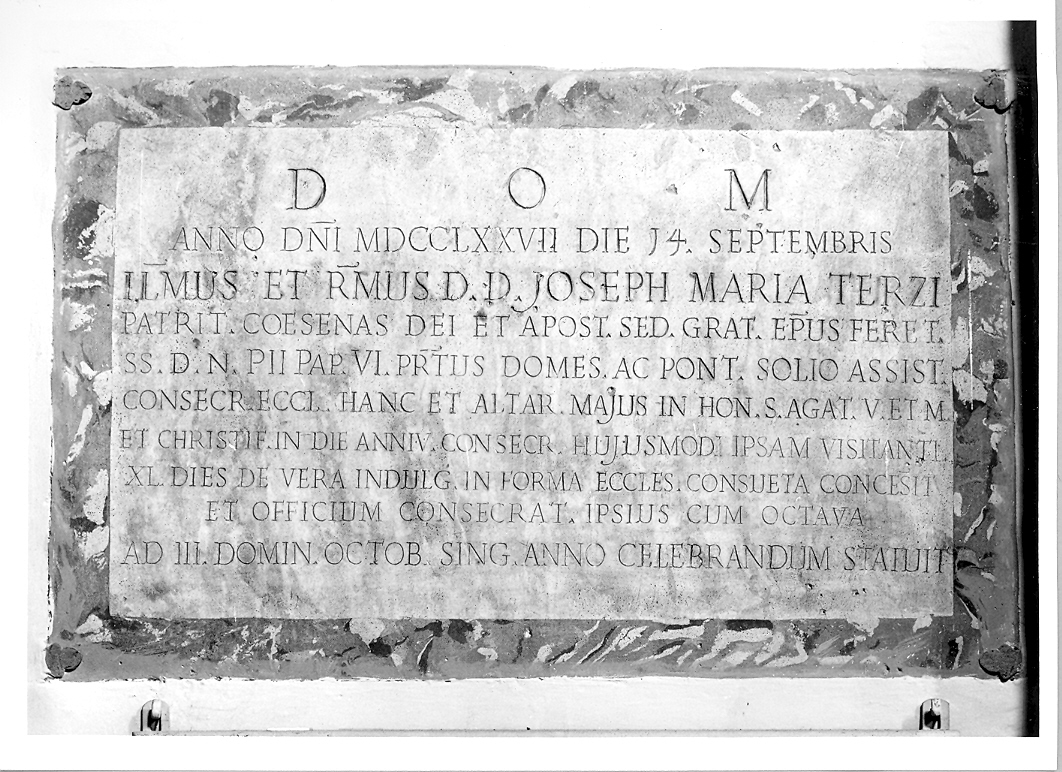 D O M
ANNO DÑI MDCCLXXVII DIE J4. SEPTEMBRIS
ILM̄US ET RM̄US D. D. JOSEPH MARIA TERZI
PATRIT. COESENAS DEI ET APOST. SED. GRAT. EP̄US FERET.
SS. D. N. PII PAP. VI. PR̄TUS DOMES. AC PONT. SOLIO ASSIST.
CONSECR. ECCL. HANC ET ALTAR. MAJUS IN HON. S. AGAT. V. ET M.
ET CHRISTIF. IN DIE ANNIV. CONSECR. HUJUSMODI IPSAM VISITANTI.
XL. DIES DE VERA INDULG. IN FORMA ECCLES. CONSUETA CONCESIT
ET OFFICIUM CONSECRAT. IPSIUS CUM OCTAVA
AD III. DOMIN. OCTOB. SING. ANNO CELEBRANDUM STATUIT